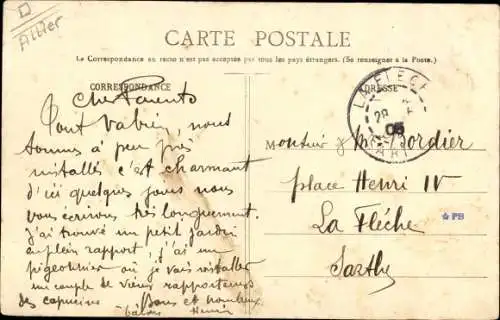 Allier
CARTE POSTALE
La Correspondance au recto n'est pas acceptée par tous les pays étrangers. (Se renseigner à la Poste.)
CORRESPONDANCE
ADRESSE
LA FLECHE
28
06
Cher Parents
Tout va bien, nous
sommes à peu près
installés c'est charmant
d'ici quelques jours nous
vous écrirons très longuement.
J'ai trouvé un petit jardin
en plein rapport, j'ai un
pigeonnier où je vais installer
un couple de vieux rapporteurs
des capucins Bons et nombreux
baisers Henri
Monsieur & Mme Cordier
place Henri IV
La Flèche
Sarthe
PB